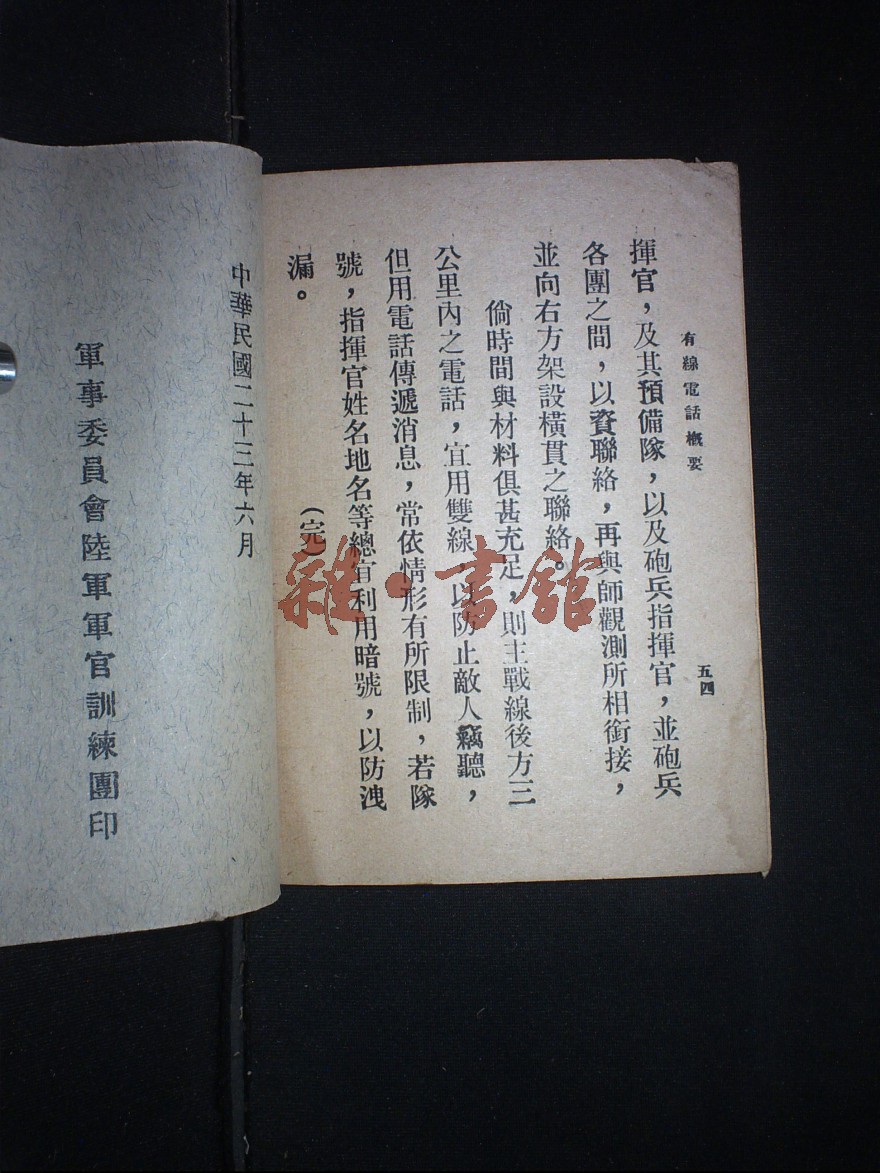 有線電話概要
五四
揮官，及其預備隊，以及砲兵指揮官，並砲兵
各團之間，以資聯絡，再與師觀測所相銜接，
並向右方架設橫貫之聯絡。
倘時間與材料俱甚充足，則主戰線後方三
公里內之電話，宜用雙線，以防止敵人竊聽，
但用電話傳遞消息，常依情形有所限制，若隊
號，指揮官姓名地名等總有利用暗號，以防洩
漏。
(完)
中華民國二十三年六月
軍事委員會陸軍軍官訓練團印
雜·書館